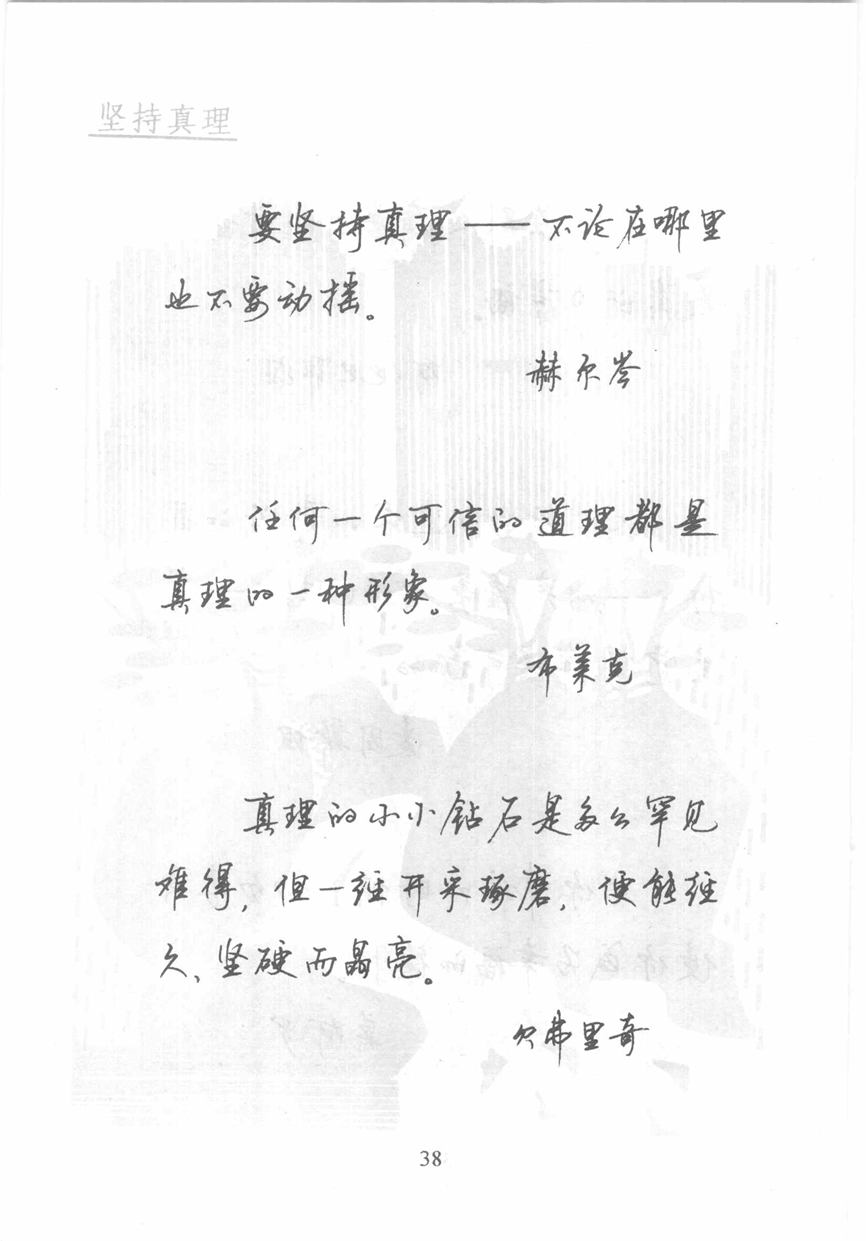 坚持真理
要坚持真理——不论在哪里
也不要动摇。
赫尔岑
任何一个可信的道理都是
真理的一种形象。
布莱克
真理的小小钻石是多么罕见
难得，但一经开采琢磨，便能经
久、坚硬而晶亮。
贝弗里奇
38